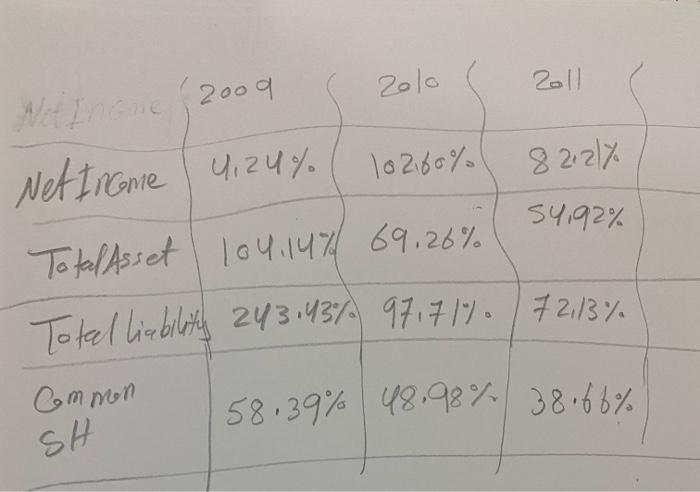 Net Income 2009 2010 2011
Net Income 4.24% 102.60% 82.21%
Total Asset 104.14% 69.26% 54.92%
Total liability 243.43% 97.71%. 72.13%
Common
SH 58.39% 48.98% 38.66%